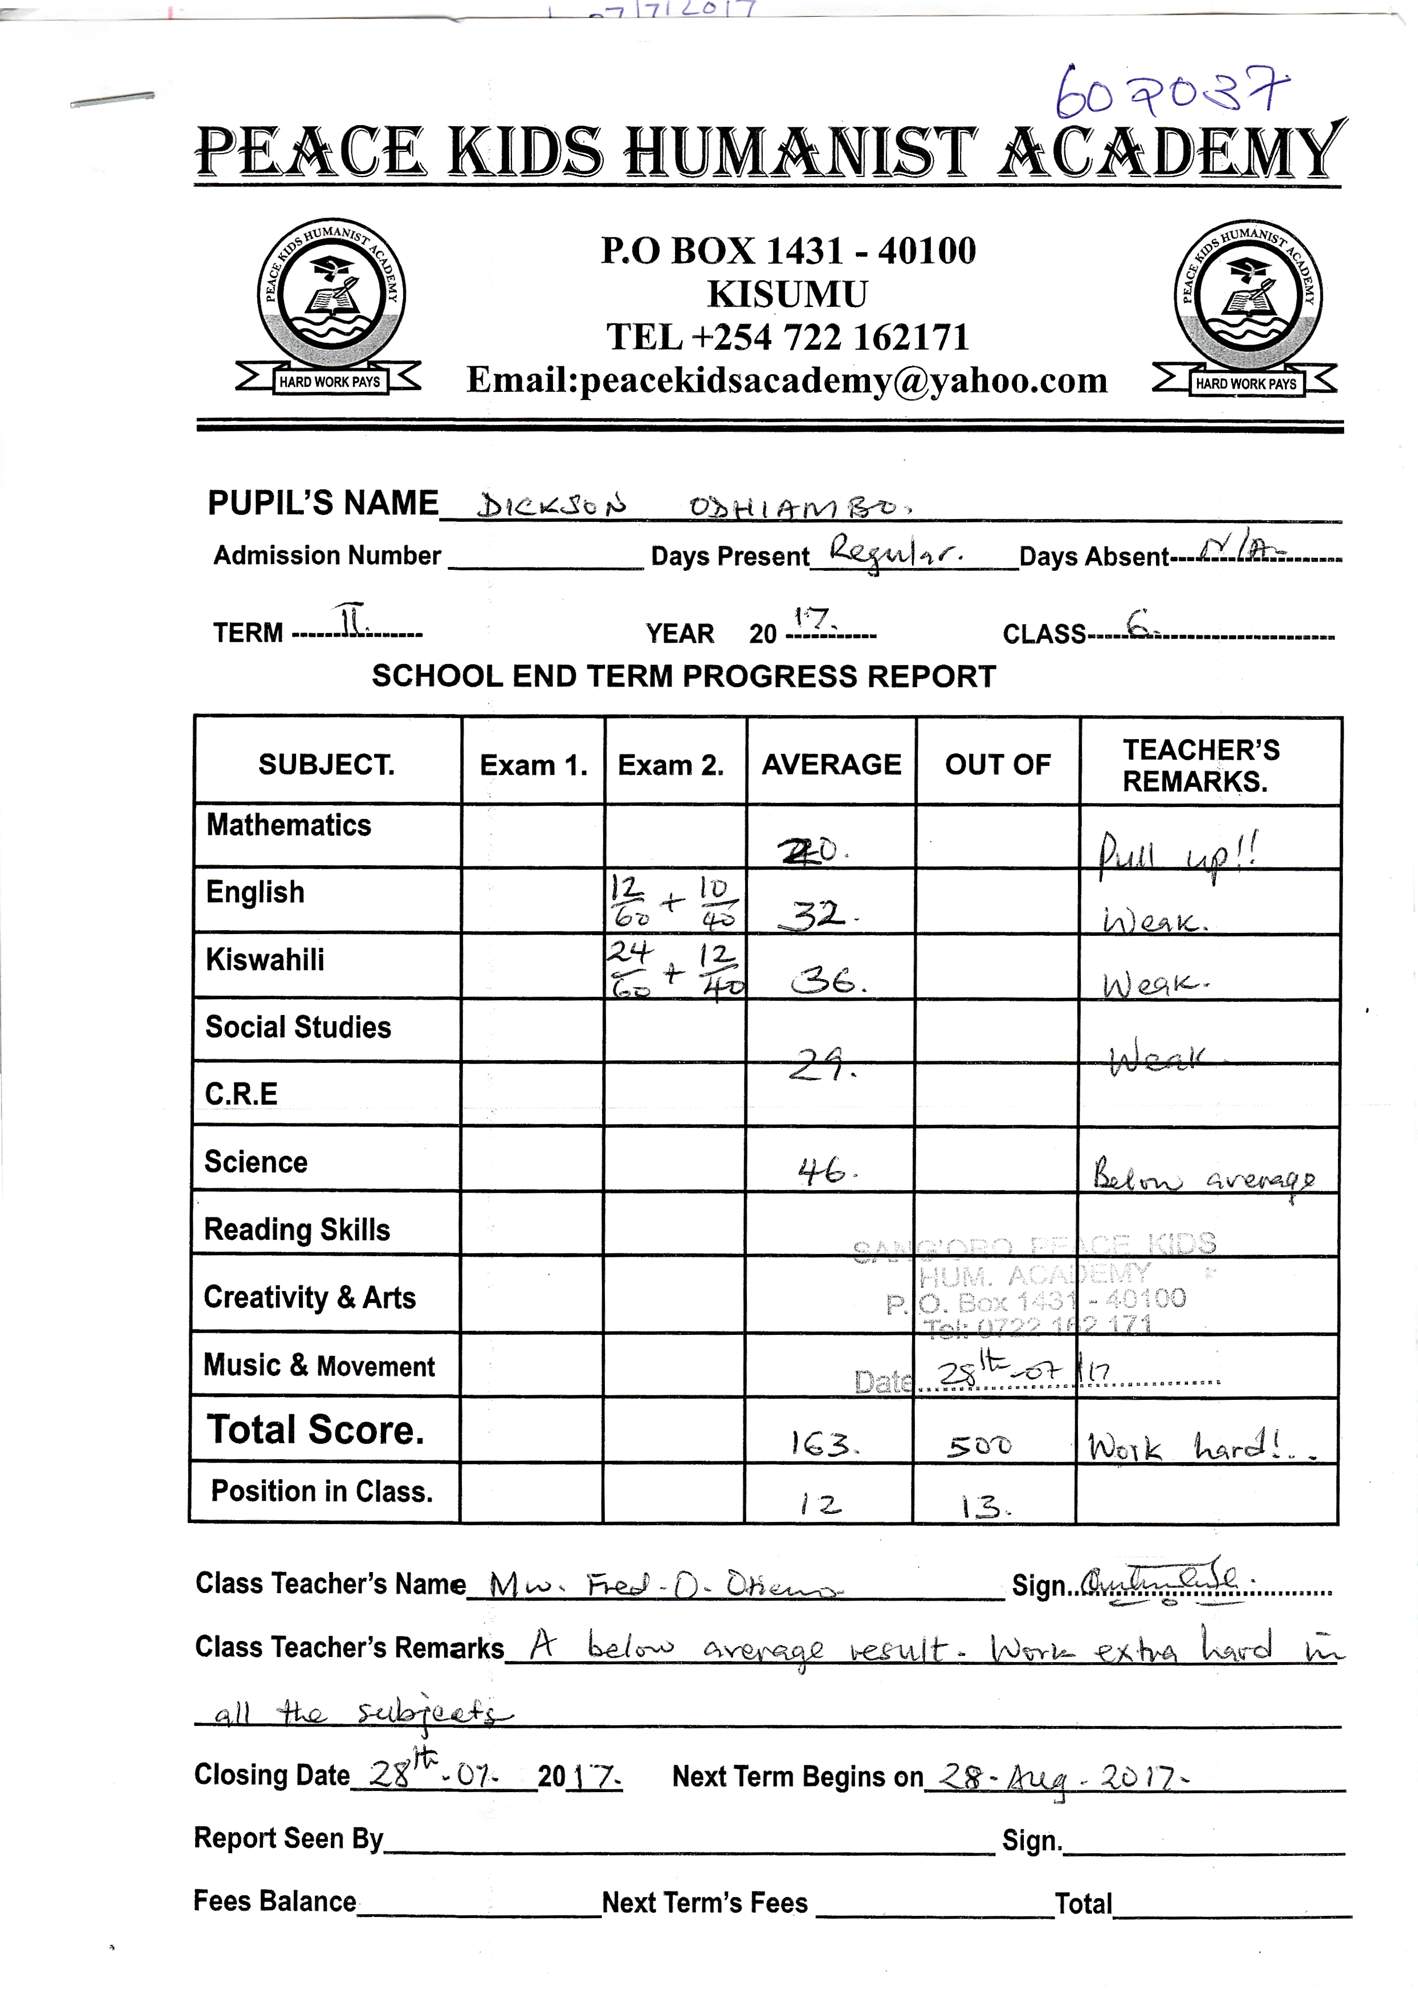 07/7/2017
602037
PEACE KIDS HUMANIST ACADEMY
PEACE KIDS HUMANIST ACADEMY
HARD WORK PAYS
P.O BOX 1431 - 40100
KISUMU
TEL +254 722 162171
Email:peacekidsacademy@yahoo.com
PEACE KIDS HUMANIST ACADEMY
HARD WORK PAYS
PUPIL'S NAME DICKSON ODHIAMBO.
Admission Number Days Present Regular. Days Absent N/A
TERM II. YEAR 2017. CLASS 6.
SCHOOL END TERM PROGRESS REPORT
SUBJECT. Exam 1. Exam 2. AVERAGE OUT OF TEACHER'S REMARKS.
Mathematics 20. Pull up!!
English 12/60 + 10/40 32. Weak.
Kiswahili 24/60 + 12/40 36. Weak.
Social Studies 29. Weak.
C.R.E
Science 46. Below average
Reading Skills
SANG'ORO PEACE KIDS
HUM. ACADEMY
Creativity & Arts
P. O. Box 1431 - 40100
Tel: 0722 162 171
Music & Movement
Date 28th-07/17
Total Score. 163. 500 Work hard!..
Position in Class. 12 13.
Class Teacher's Name Mw. Fred-O-Otieno Sign.
Class Teacher's Remarks A below average result. Work extra hard in
all the subjects
Closing Date 28th-07- 2017. Next Term Begins on 28-Aug-2017-
Report Seen By Sign.
Fees Balance Next Term's Fees Total